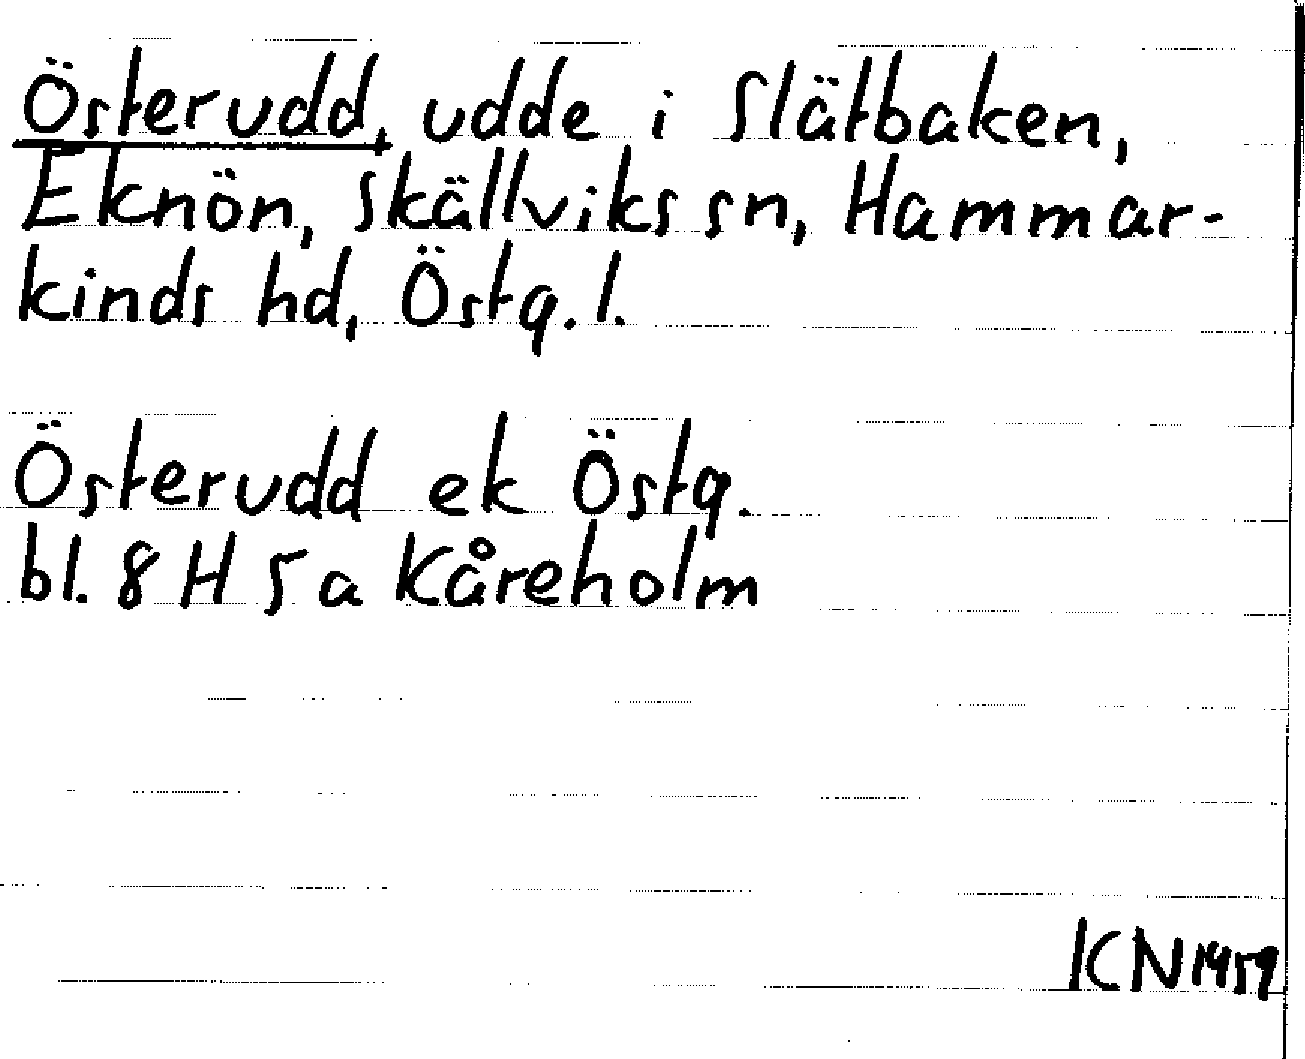 Österudd, udde i Slätbaken,
Eknön, Skällviks sn, Hammar-
kinds hd, Östg. l.
Österudd ek Östg.
bl. 8 H 5 a Kåreholm
KN 1959